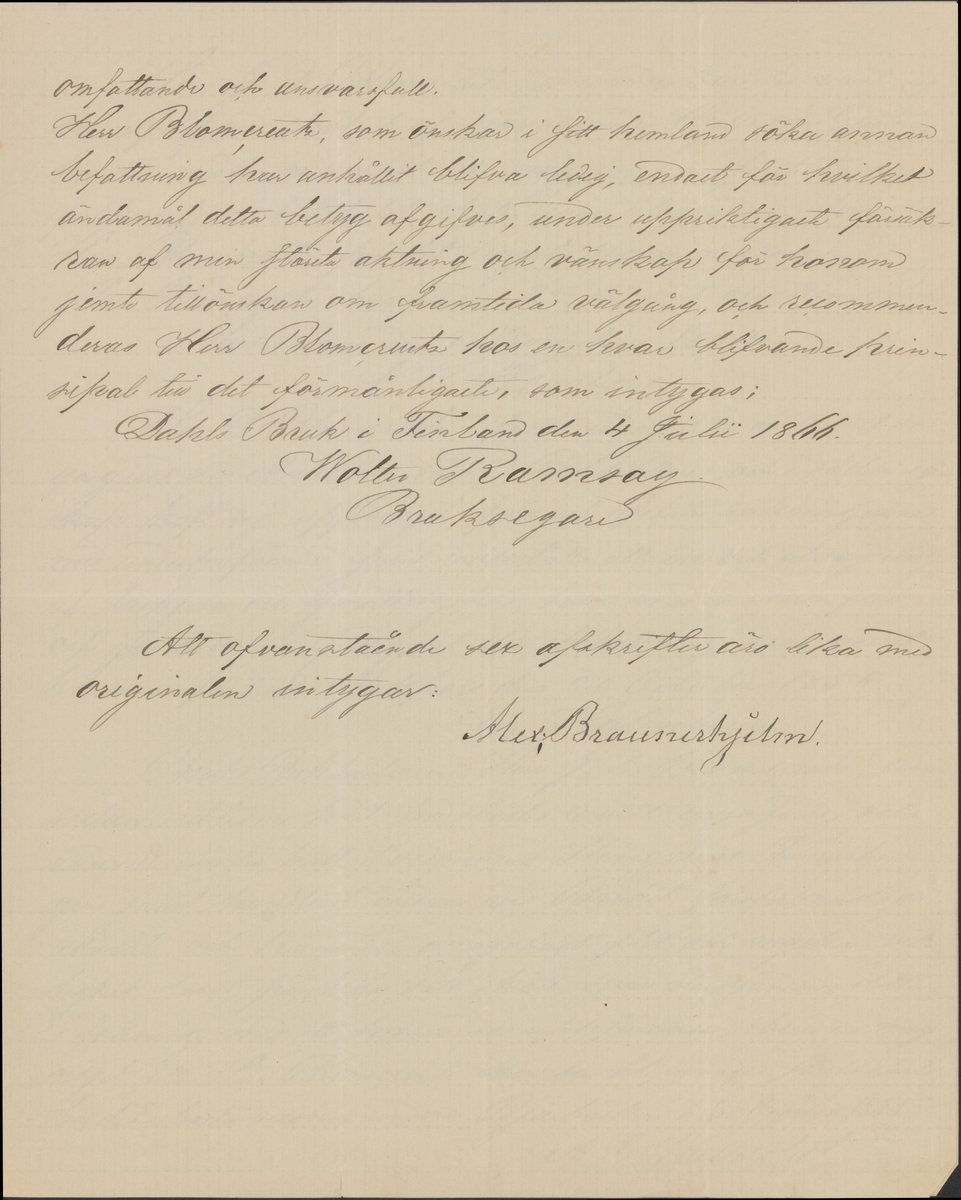 omfattande och ansvarsfull.
Herr Blomcreutz, som önskar i sitt hemland söka annan
befattning har anhållit blifva ledig, endast för hvilket
ändamål detta betyg afgifves, under uppriktigaste försäk-
ran af min största aktning och vänskap för honom
jemte tillönskan om framtida välgång, och recommen-
deras Herr Blomcreutz hos en hvar blifvande prin-
sipal till det förmånligaste, som intygas;
Dahls Bruk i Finland den 4 Julii 1866.
Wolter Ramsay
Bruksegare
Att ofvanstående sex afskrifter äro lika med
originalen intygar:
Alex. Braunerhjelm.